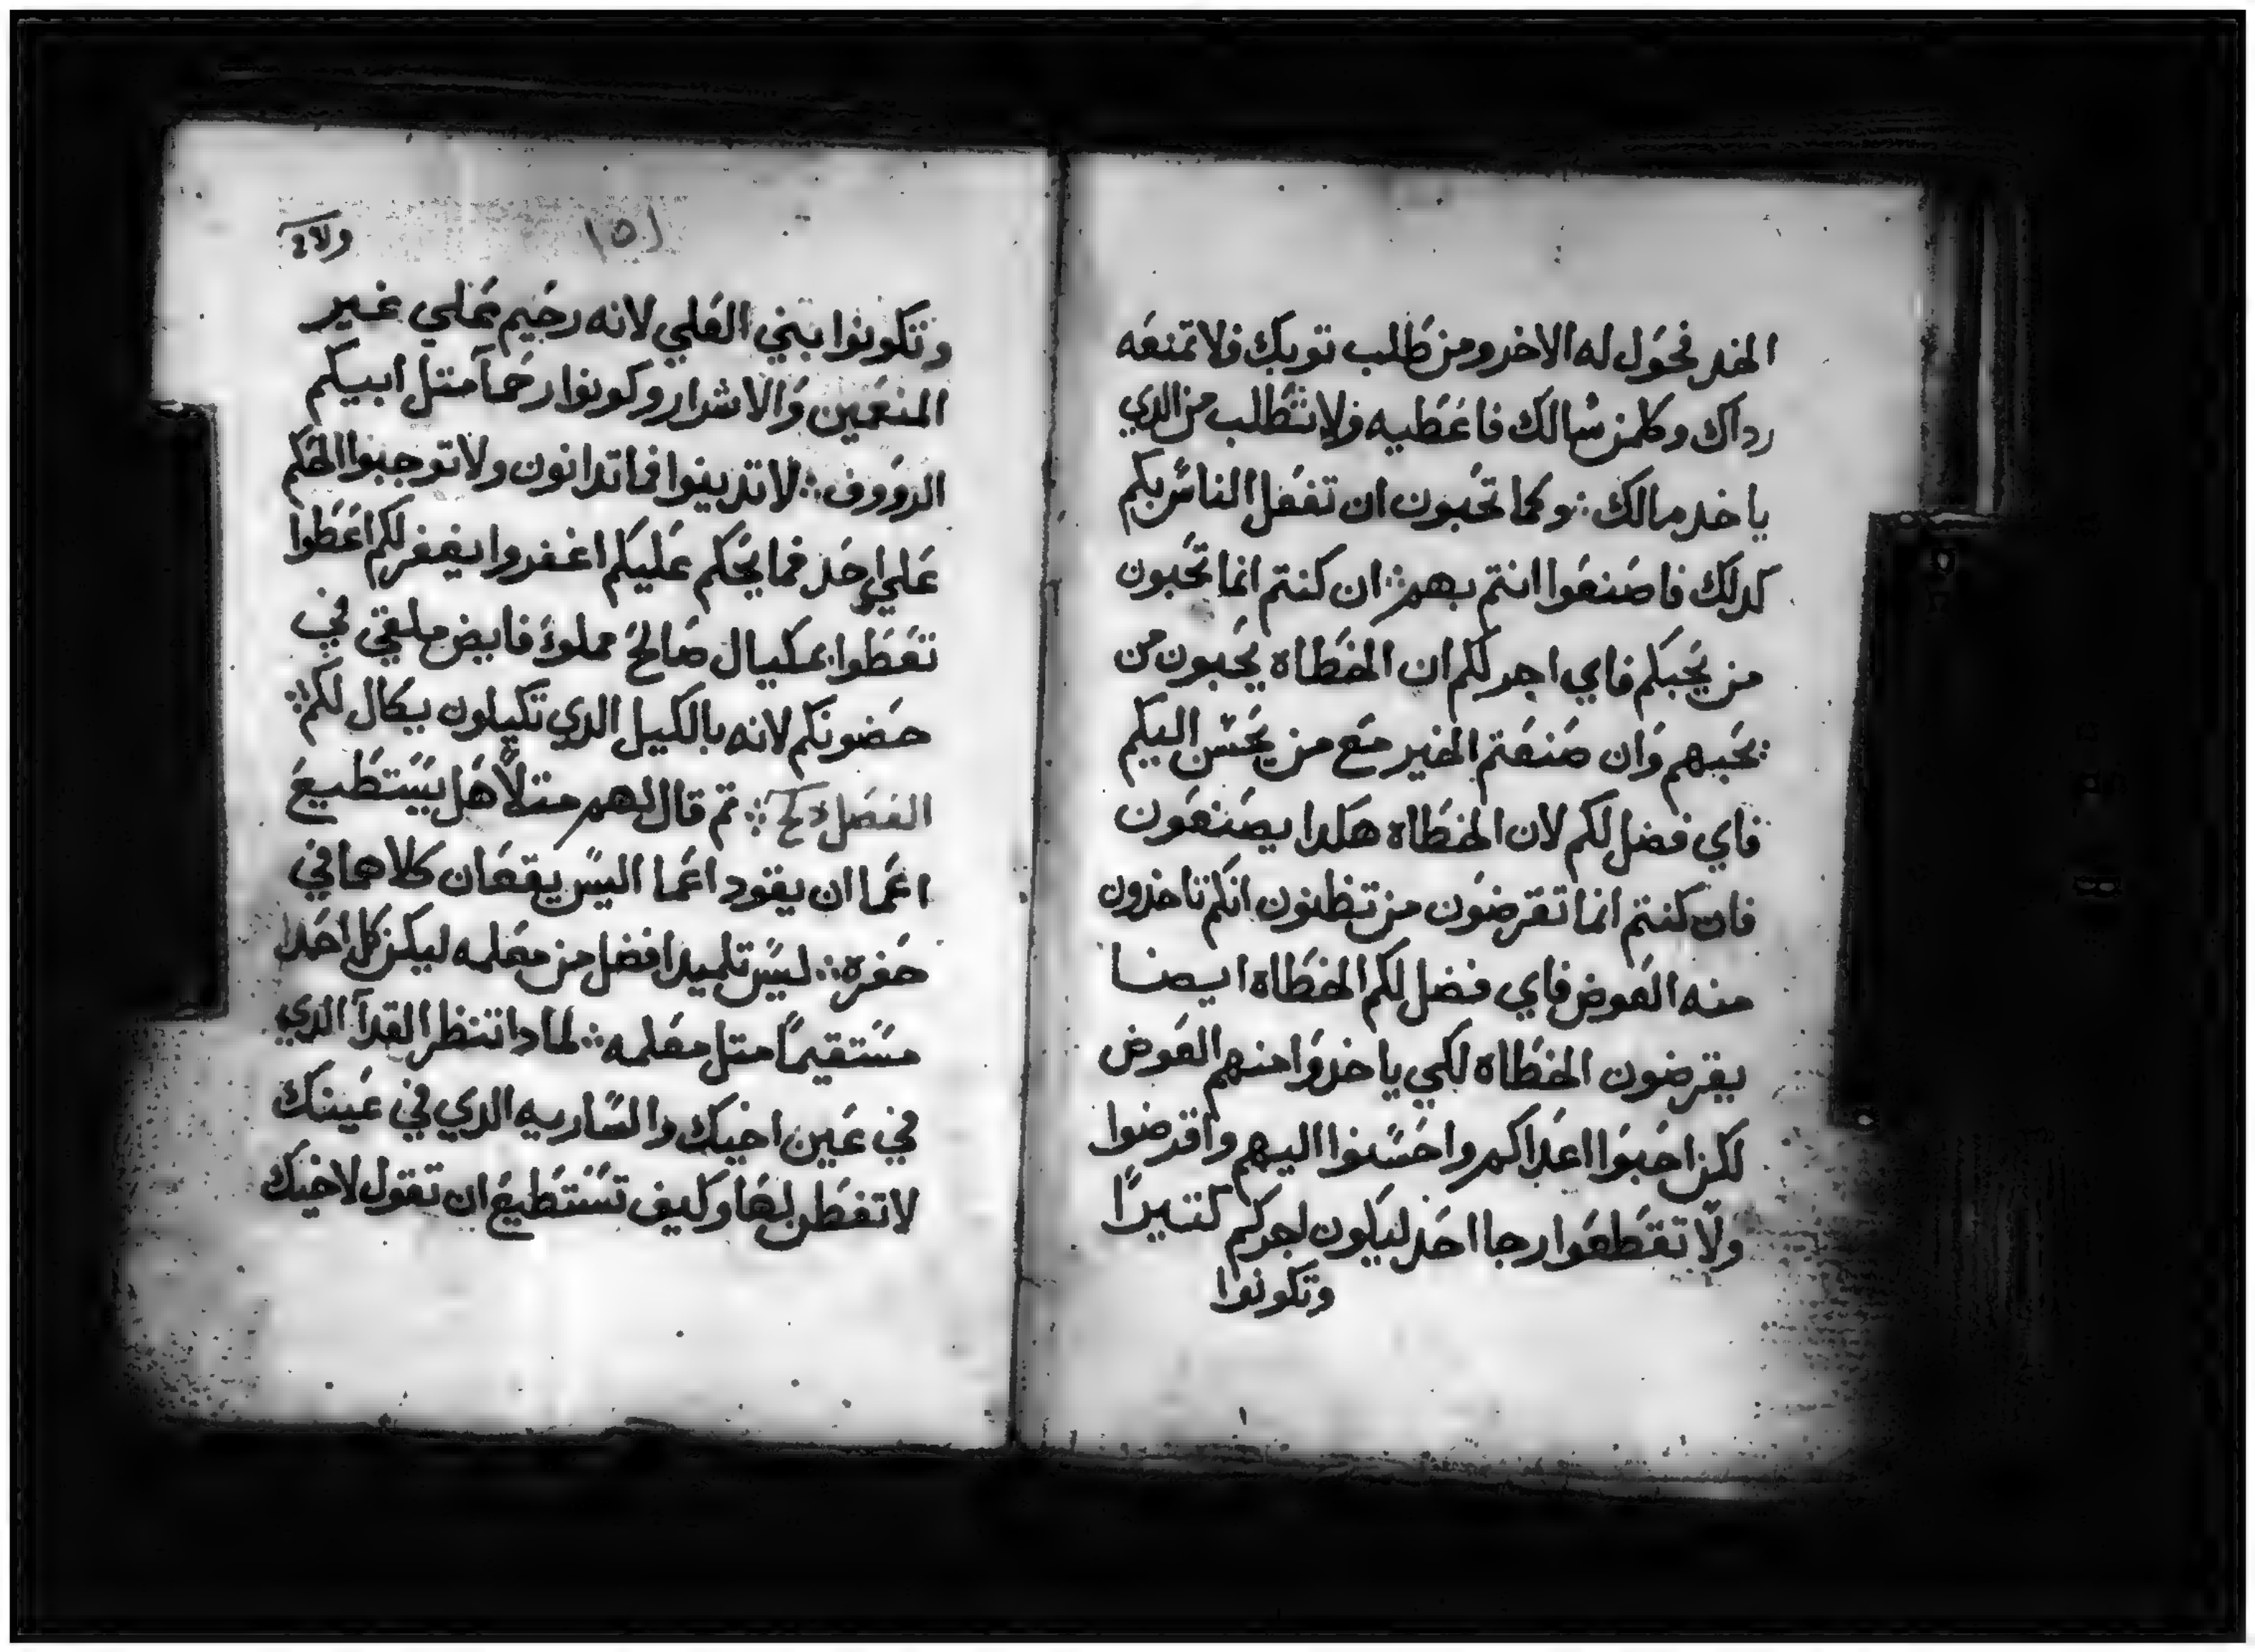 الخد فحول له الاخر ومن طلب توبك فلا تمنعه
رداك وكلمن سالك فاعطيه ولا تتطلب من الدي
ياخد مالك ⁘ وكما تحبون ان تفعل الناس بكم
كدلك فاصنعوا انتم بهم ⁘ ان كنتم انما تحبون
من يحبكم فاي اجر لكم ان الخطاه يحبون من
يحبهم وان صنعتم الخير مع من يحسن اليكم
فاي فضل لكم لان الخطاه هكدا يصنعون
فان كنتم انما تقرضون من تظنون انكم تاخدون
منه العوض فاي فضل لكم الخطاه ايضا
يقرضون الخطاه لكي ياخدوا منهم العوض
لكن احبوا اعداكم واحسنوا اليهم واقرضوا
ولا تقطعوا رجا احد ليكون اجركم كتيرًا
وتكونوا
١٥١
وتكونوا بني العلي لانه رحيم علي غير
المنعمين والاشرار وكونوا رحمآ متل ابيكم
الرووف ⁘ لا تدينوا فما تدانون ولا توجبوا الحكم
علي احد فما يحكم عليكم اغفروا يغفر لكم اعطوا
تعطوا بمكيال صالح مملوء فايض ملقي في
حضونكم لانه بالكيل الدي تكيلون يكال لكم ⁘
الفصل ⁘ تم قال لهم متلًا هل يستطيع
اعما ان يقود اعما اليس يقعان كلاهما في
حفره ⁘ ليس تلميد افضل من معلمه ليكن كل احد
مستقيمًا متل معلمه ⁘ لمادا تنظر القدآ الدي
في عين اخيك والساريه الدي في عينك
لا تفطن لها وكيف تستطيع ان تقول لاخيك